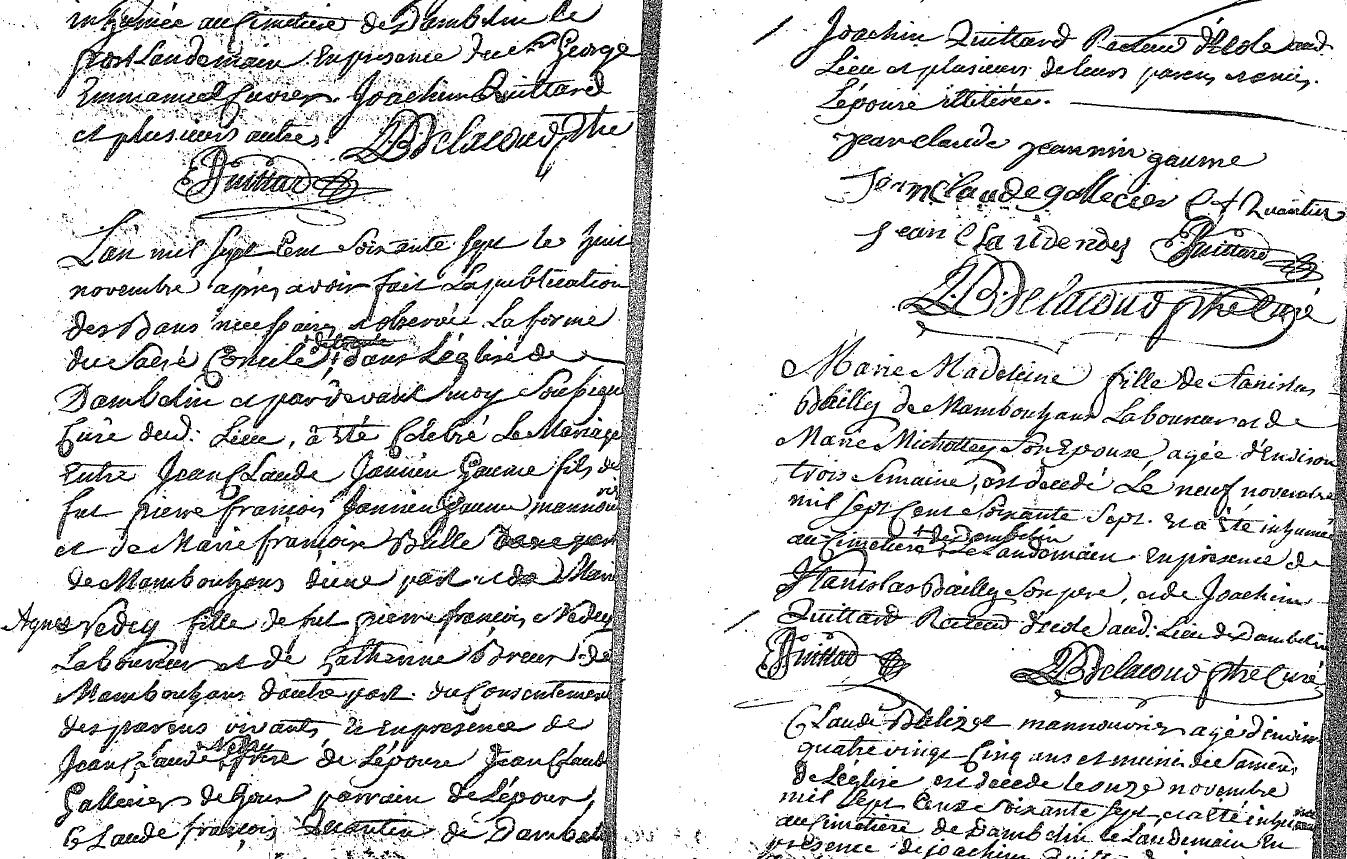 inhumée au Cimetiere de Dambelin le
Landemain En presence du George
Emmanuel Cuvier Joachim Quittard
et plusieurs autres JBDelacoud Ptre
JQuittard
Lan mil Sept Cent Soixante Sept le huit
novembre après avoir fait La publication
des Bans necessaires et observée La forme
du Sacré Concile de trente, dans L'église de
Dambelin et pardevant moy Soussigné
Curé dud. Lieu, à été Celebré Le Mariage
Entre Jean Claude Jannien Gaume fils de
fut pierre françois Jannien Gaume mannouvrier
et de Marie françoise Balle
de Mambouhans d'une part et de Marie
Agnes Vedey fille de fut pierre françois Vedey
Laboureur et de Catherinne Breur de
Mambouhans d'autre part. du Consentement
des parens vivants, et En presence de
Jean Claude Vedey frere de L'épouse Jean Claude
Gallecier de parrain de L'époux,
Claude françois Quantin de Dambelin
Joachim Quittard Recteud d'école aud.
Lieu et plusieurs de leurs parens et amis.
L'épouse illiterée.
jean claude jeannin gaume
jean Claude gallecier C f Quantin
jean Claude vedey JQuittard
J.B. Delacoud ptre Curé
Marie Madeleine fille de Stanislas
Bailly de Mambouhans Laboureur et de
Marie Michottey Son Epouse, agée d'Environ
trois Semaine, est decedé Le neuf novembre
mil Sept Cent Soixante Sept. et a été inhumée
au Cimetiere de Dambelin Le Landemain En presence de
Stanislas Bailly Son pere, et de Joachim
Quittard Recteud d'école aud. Lieu de Dambelin
JQuittard JBDelacoud ptre Curé
Claude mannouvrier agé d'environ
quatre vingt Cinq ans et muni des Sacremens
de L'église est decede le onze novembre
mil Sept Cent Soixante Sept, et a été inhumé
au Cimetiere de Dambelin le Landemain En
presence de joachim Quittard